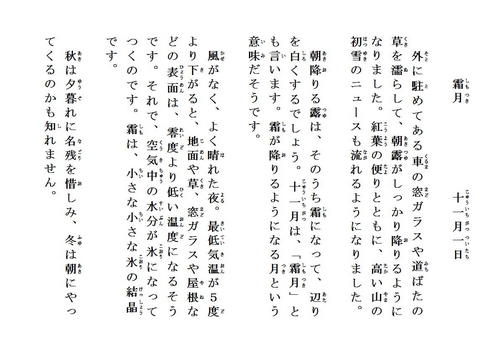 霜月　十一月一日
外に駐めてある車の窓ガラスや道ばたの
草を濡らして、朝露がしっかり降りるように
なりました。紅葉の便りとともに、高い山の
初雪のニュースも流れるようになりました。
朝降りる露は、そのうち霜になって、辺り
を白くするでしょう。十一月は、「霜月」と
も言います。霜が降りるようになる月という
意味だそうです。
風がなく、よく晴れた夜。最低気温が５度
より下がると、地面や草、窓ガラスや屋根な
どの表面は、零度より低い温度になるそう
です。それで、空気中の水分が氷になって
つくのです。霜は、小さな小さな氷の結晶
です。
秋は夕暮れに名残を惜しみ、冬は朝にやっ
てくるのかも知れません。